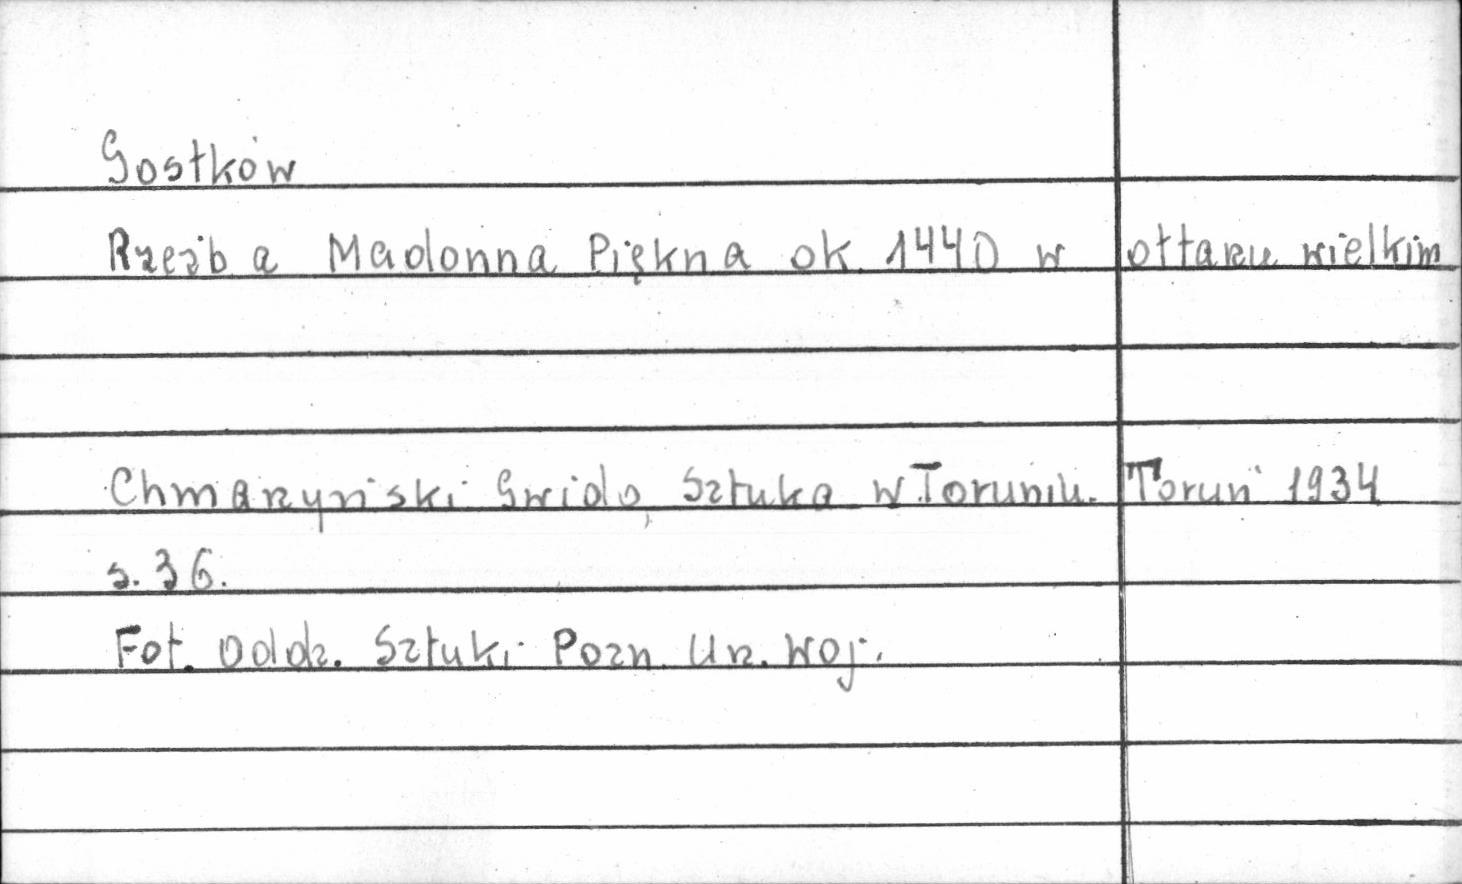 Gostków
Rzeźba Madonna Piękna ok. 1440 w ołtarzu wielkim
Chmarzyński Gwido, Sztuka w Toruniu. Toruń 1934
s. 36.
Fot. Oddz. Sztuki Pozn. Urz. Woj.